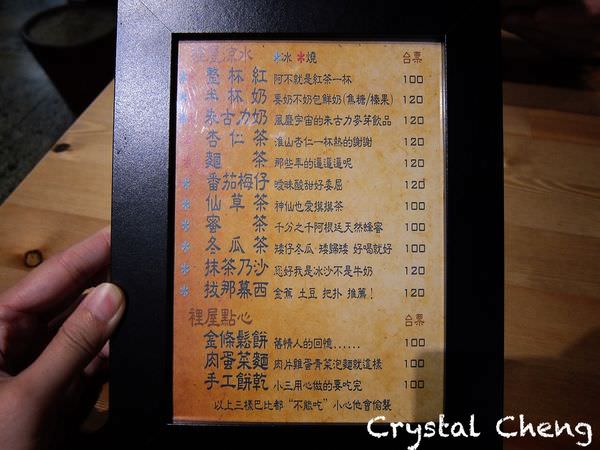 裡屋涼水 *冰 *燒 台票
整杯紅 阿不就是紅茶一杯 100
半杯奶 要奶不奶包鮮奶(焦糖/榛果) 120
朱古力奶 風靡宇宙的朱古力麥芽飲品 120
杏仁茶 淮山杏仁一杯熱的謝謝 120
麵茶 那些年的逼逼逼呢 120
番茄梅仔 曖昧酸甜好委屈 120
仙草茶 神仙也愛摸摸茶 100
蜜茶 千分之千阿根廷天然蜂蜜 100
冬瓜茶 矮仔冬瓜 矮歸矮 好喝就好 100
抹茶乃沙 您好我是冰沙不是牛奶 120
拔那幕西 金蕉 土豆 把扑 推薦! 120
裡屋點心 台票
金條鬆餅 舊情人的回憶...... 100
肉蛋菜麵 肉片雞蛋青菜泡麵就這樣 100
手工餅乾 小三用心做的要吃完 100
以上三樣巴比都“不能吃”小心他會偷襲
Crystal Cheng